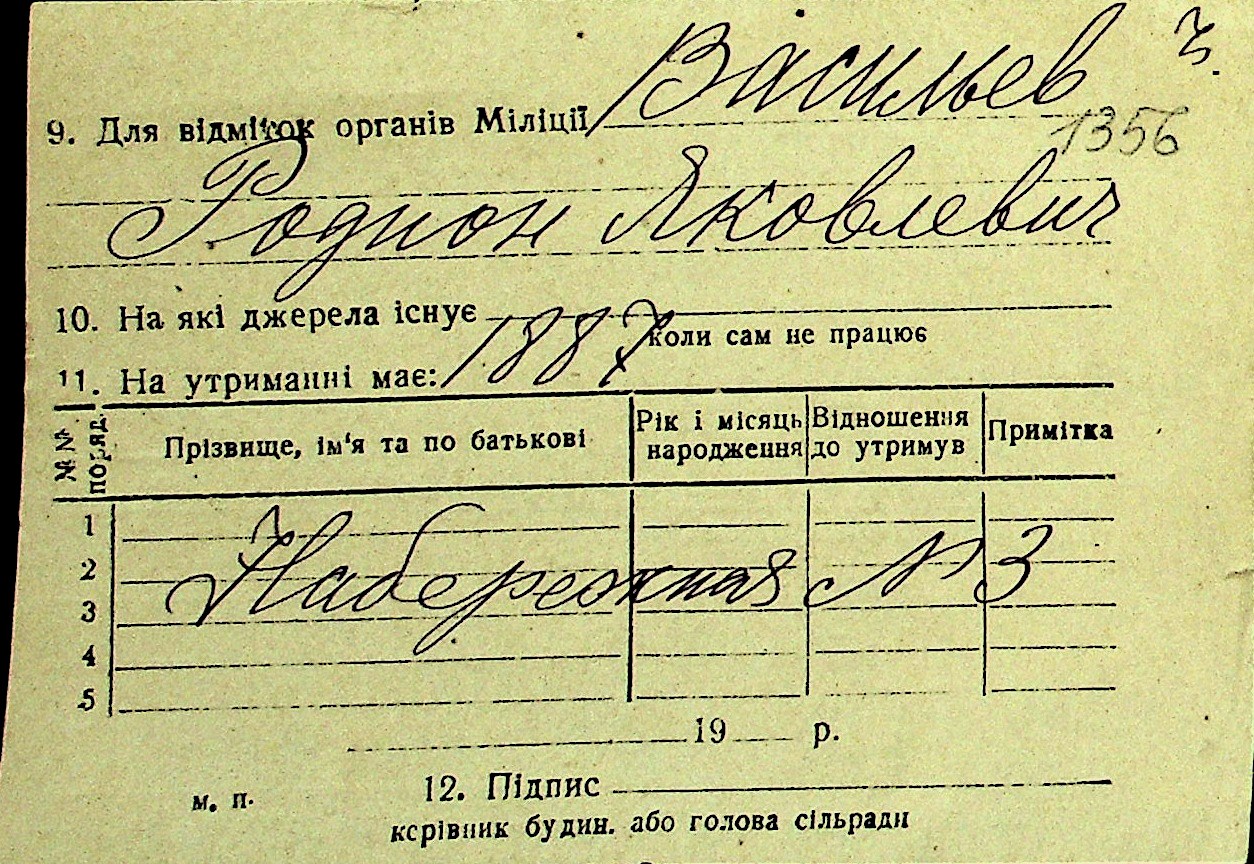 Васильев ч.
9. Для відміток органів Міліції
1356
Родион Яковлевич
10. На які джерела існує
1887 коли сам не працює
11. На утриманні має:
№№ поряд. Прізвище, ім'я та по батькові Рік і місяць народження Відношення до утримув Примітка
1
2
Набережная № 3
3
4
5
19 р.
м. п. 12. Підпис
керівник будин. або голова сільради